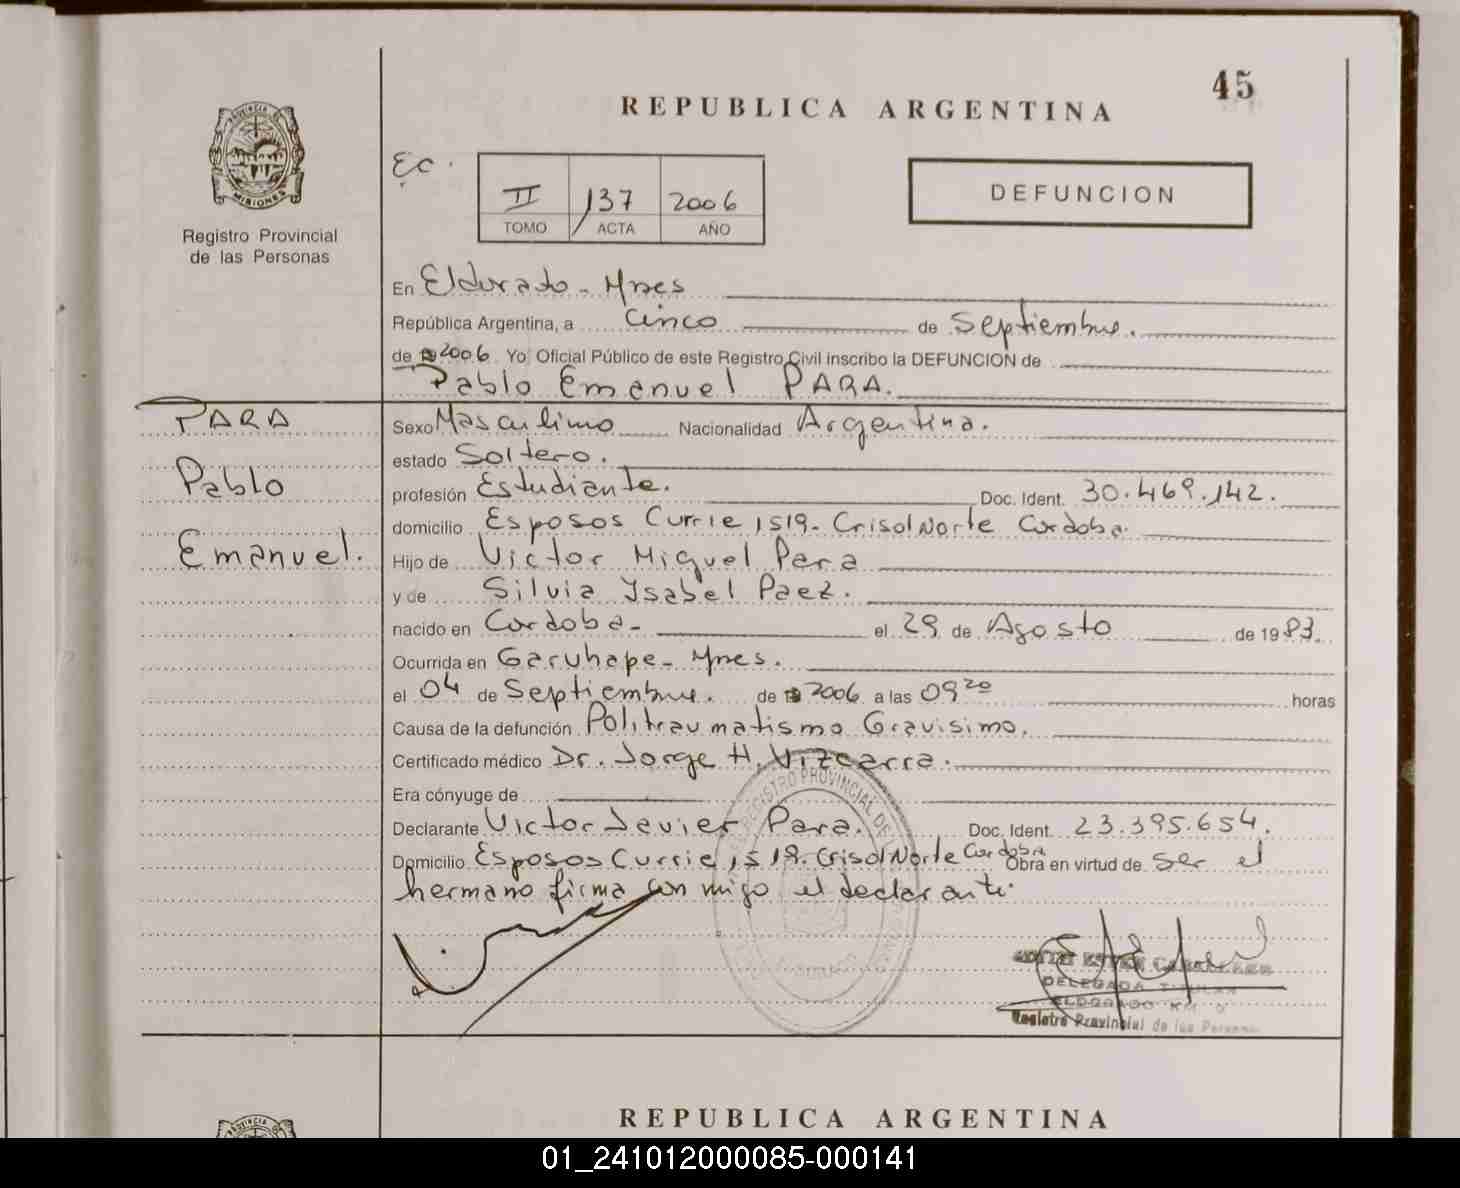 45
REPUBLICA ARGENTINA
PROVINCIA DE
MISIONES
Registro Provincial
de las Personas
Ec.
II 137 2006
TOMO ACTA AÑO
DEFUNCION
En Eldorado - Mnes
República Argentina, a cinco de Septiembre.
de 2006 Yo, Oficial Público de este Registro Civil inscribo la DEFUNCION de
Pablo Emanuel PARA.
PARA
Pablo
Emanuel.
Sexo Masculino Nacionalidad Argentina.
estado Soltero.
profesión Estudiante. Doc. Ident. 30.469.142.
domicilio Esposos Currie 1519- Crisol Norte Cordoba.
Hijo de Victor Miguel Para
y de Silvia Ysabel Paez.
nacido en Cordoba- el 29 de Agosto de 1983.
Ocurrida en Garuhape- Mnes.
el 04 de Septiembre. de 2006 a las 09 20 horas
Causa de la defunción Politraumatismo Gravisimo.
Certificado médico Dr. Jorge H. Vizcarra.
Era cónyuge de
Declarante Victor Javier Para. Doc. Ident. 23.395.654.
Domicilio Esposos Currie 1519. Crisol Norte Cordoba Obra en virtud de Ser el
hermano firma con migo el declarante.
REGISTRO PROVINCIAL DE
DELEGADA TITULAR
ELDORADO KM
Registro Provincial de las Personas
REPUBLICA ARGENTINA
PROVINCIA
01_241012000085-000141